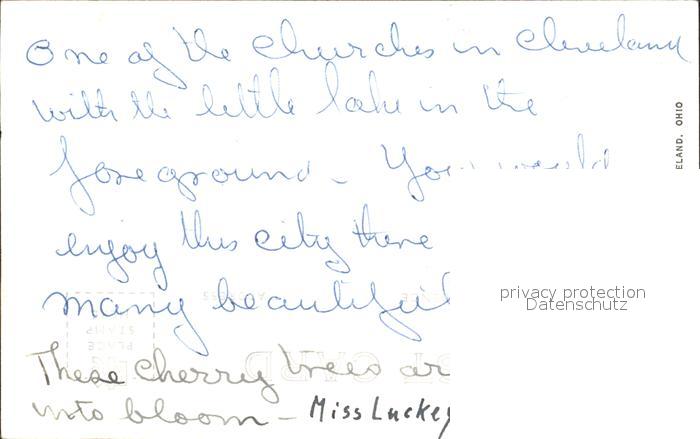 One of the churches in Cleveland
with the little lake in the
foreground - You would
enjoy this city there
many beautiful
These cherry trees ar
into bloom - Miss Luckey
ELAND, OHIO
privacy protection
Datenschutz
PLACE
STAMP
CARD